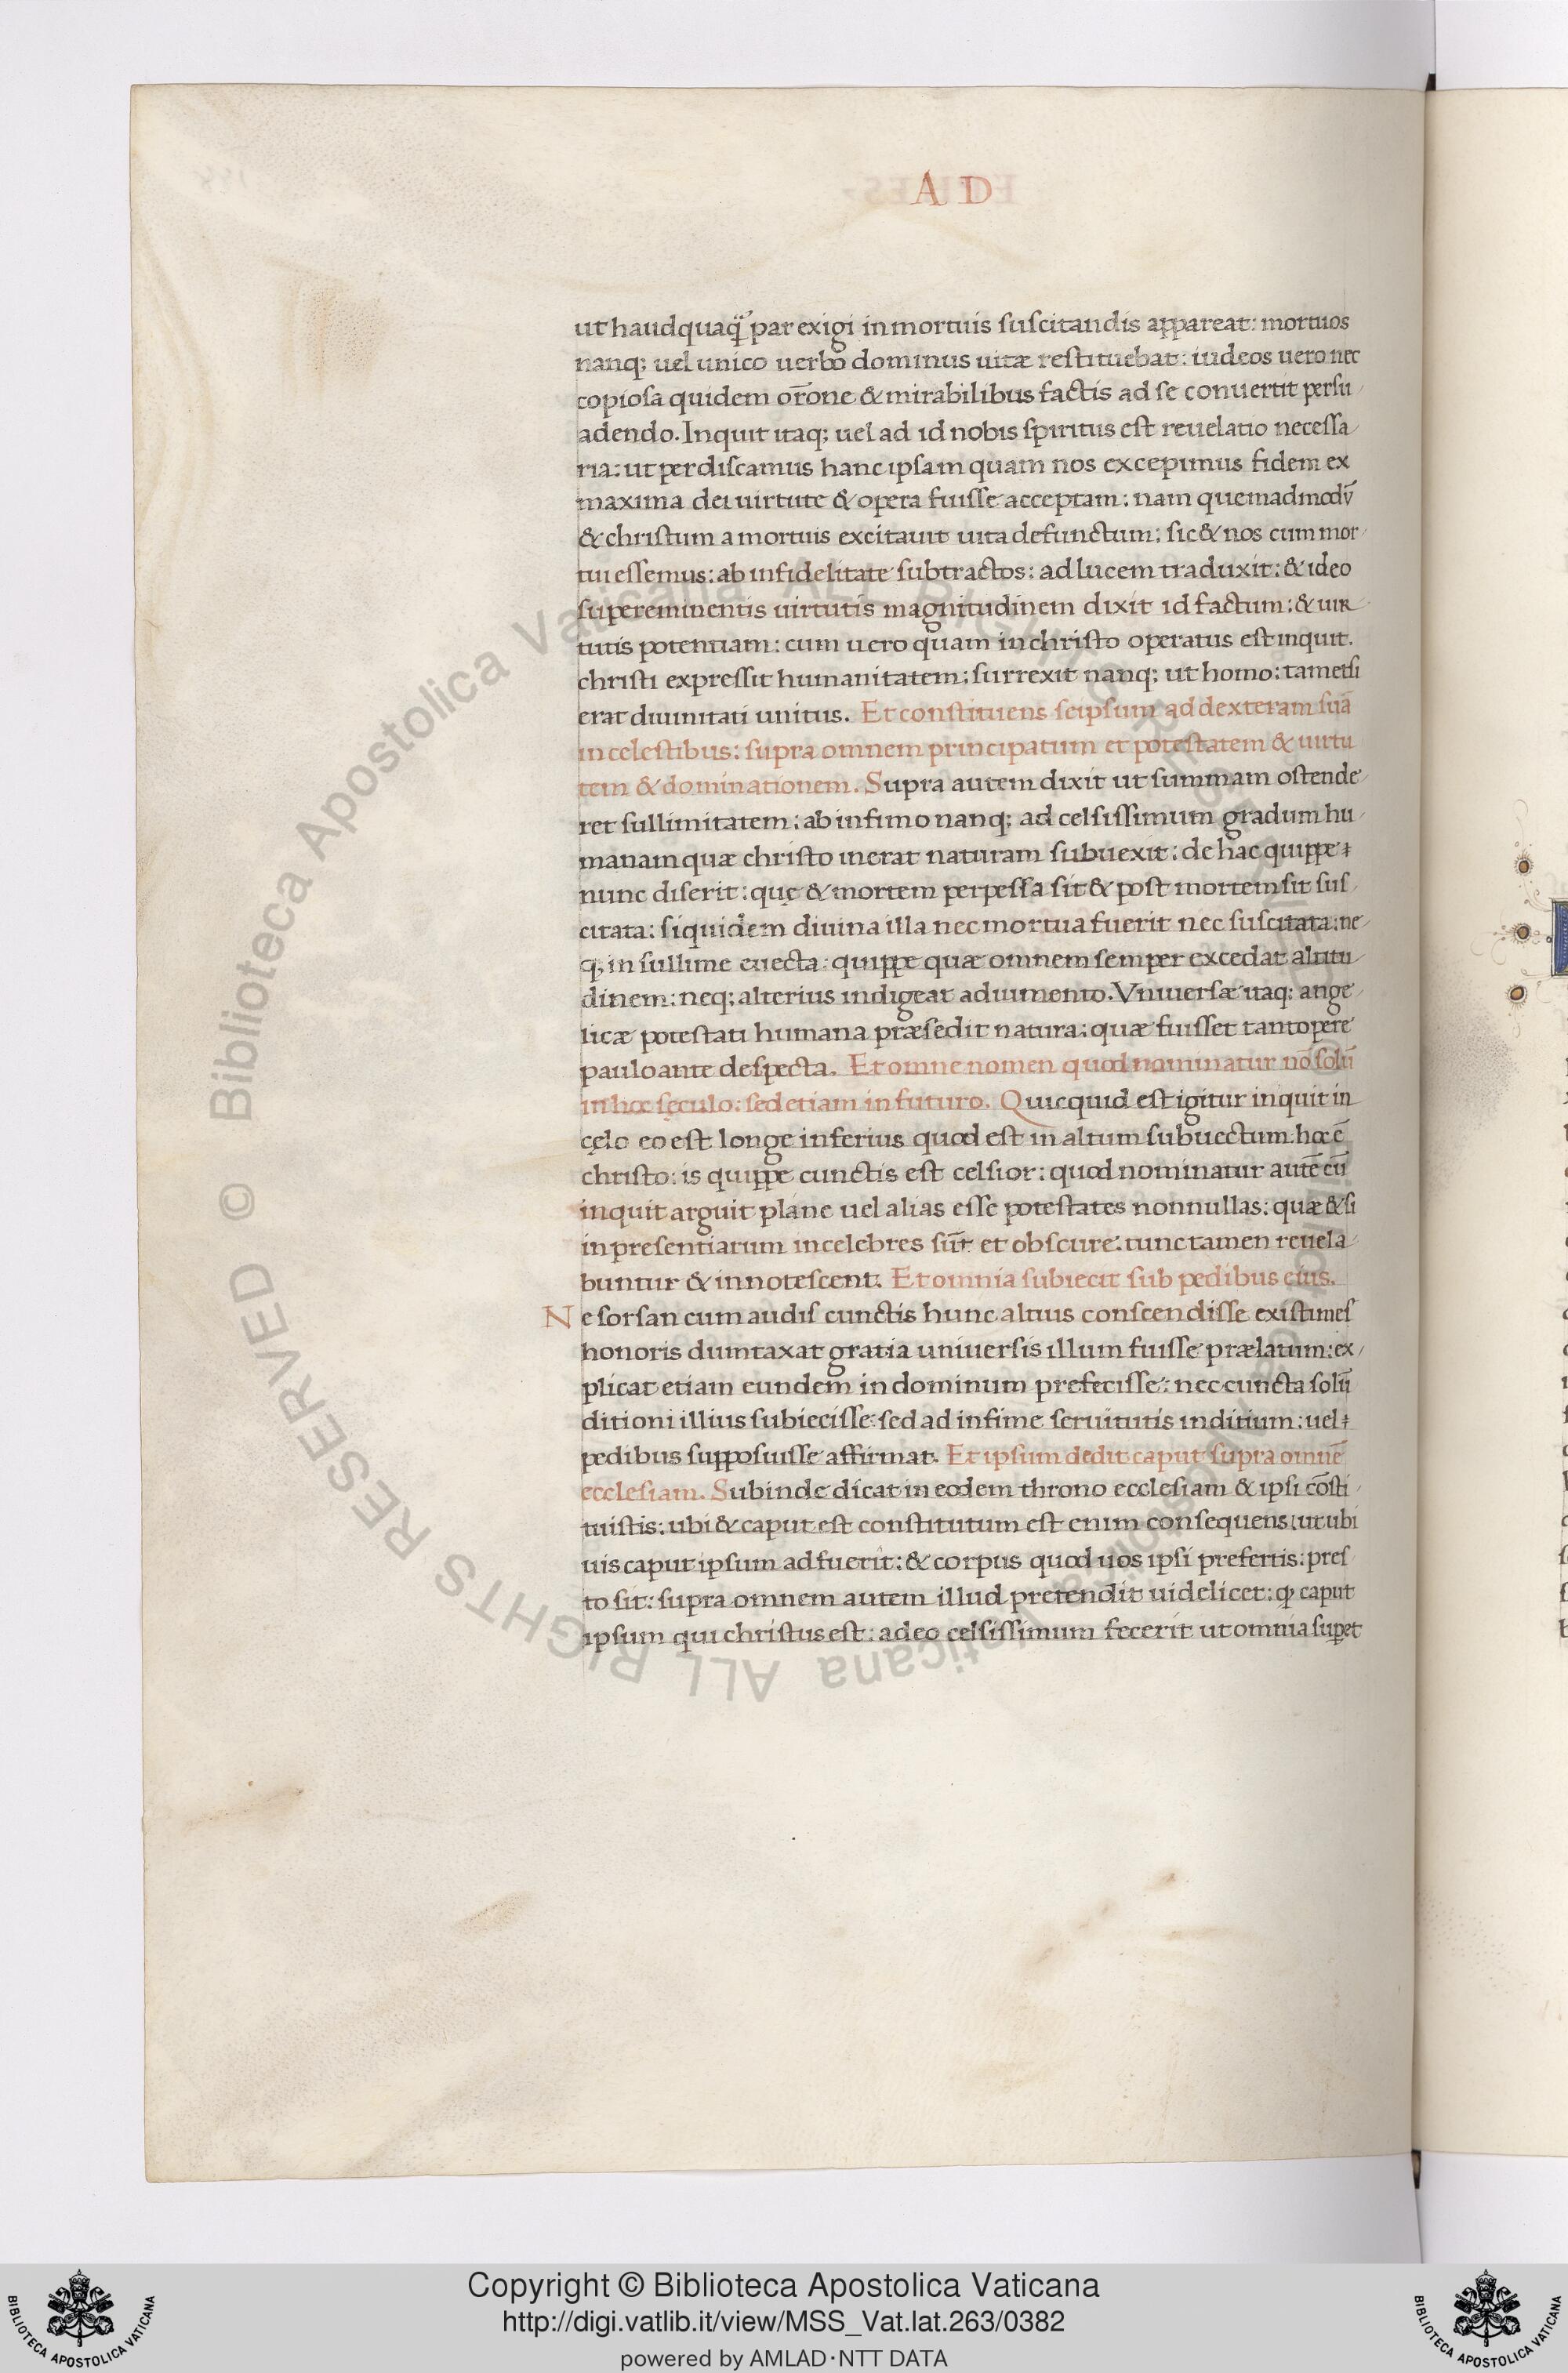 A D
ut haudquaq̃ par exigi in mortuis suscitandis appareat: mortuos
nanq; uel unico uerbo dominus uitæ restituebat: iudeos uero nec
copiosa quidem or̄one & mirabilibus factis ad se conuertit persu
adendo. Inquit itaq; uel ad id nobis spiritus est reuelatio necessa
ria: ut perdiscamus hanc ipsam quam nos excepimus fidem ex
maxima dei uirtute & opera fuisse acceptam: nam quemadmodū
& christum a mortuis excitauit uita defunctum: sic & nos cum mor
tui essemus: ab infidelitate subtractos: ad lucem traduxit: & ideo
supereminentis uirtutis magnitudinem dixit id factum: & uir
tutis potentiam: cum uero quam in christo operatus est inquit.
christi expressit humanitatem: surrexit nanq; ut homo: tametsi
erat diuinitati unitus. Et constituens seipsum ad dexteram suā
in celestibus: supra omnem principatum et potestatem & uirtu
tem & dominationem. Supra autem dixit ut summam ostende
ret sullimitatem: ab infimo nanq; ad celsissimum gradum hu
manam quæ christo inerat naturam subuexit: de hac quippe
nunc diserit: quę & mortem perpessa sit & post mortem sit sus
citata: siquidem diuina illa nec mortua fuerit nec suscitata: ne
q; in sullime euecta: quippe quæ omnem semper excedat altitu
dinem: neq; alterius indigeat adiumento. Vniuersæ itaq; ange
licæ potestati humana præsedit natura: quæ fuisset tantopere
paulo ante despecta. Et omne nomen quod nominatur nō solū
in hoc sęculo: sed etiam in futuro. Quicquid est igitur inquit in
cęlo eo est longe inferius quod est in altum subuectum. hoc ē
christo: is quippe cunctis est celsior: quod nominatur autē cū
inquit arguit plane uel alias esse potestates nonnullas: quæ & si
in presentiarum incelebres sūt et obscure: tunc tamen reuela
buntur & innotescent. Et omnia subiecit sub pedibus eius.
Ne forsan cum audis cunctis hunc altius conscendisse existimes
honoris dumtaxat gratia uniuersis illum fuisse prælatum: ex
plicat etiam eundem in dominum prefecisse: nec cuncta solū
ditioni illius subiecisse: sed ad infime seruitutis inditium: uel
pedibus supposuisse affirmat. Et ipsum dedit caput supra omnē
ecclesiam. Subinde dicat in eodem throno ecclesiam & ipsi cōsti
tuistis: ubi & caput est constitutum est enim consequens: ut ubi
uis caput ipsum adfuerit: & corpus quod uos ipsi prefertis: pres
to sit: supra omnem autem illud pretendit uidelicet: ꝙ caput
ipsum qui christus est: adeo celsissimum fecerit ut omnia supet
© Biblioteca Apostolica Vaticana ALL RIGHTS RESERVED
Copyright © Biblioteca Apostolica Vaticana
http://digi.vatlib.it/view/MSS_Vat.lat.263/0382
powered by AMLAD·NTT DATA
BIBLIOTECA APOSTOLICA VATICANA
BIBLIOTECA APOSTOLICA VATICANA